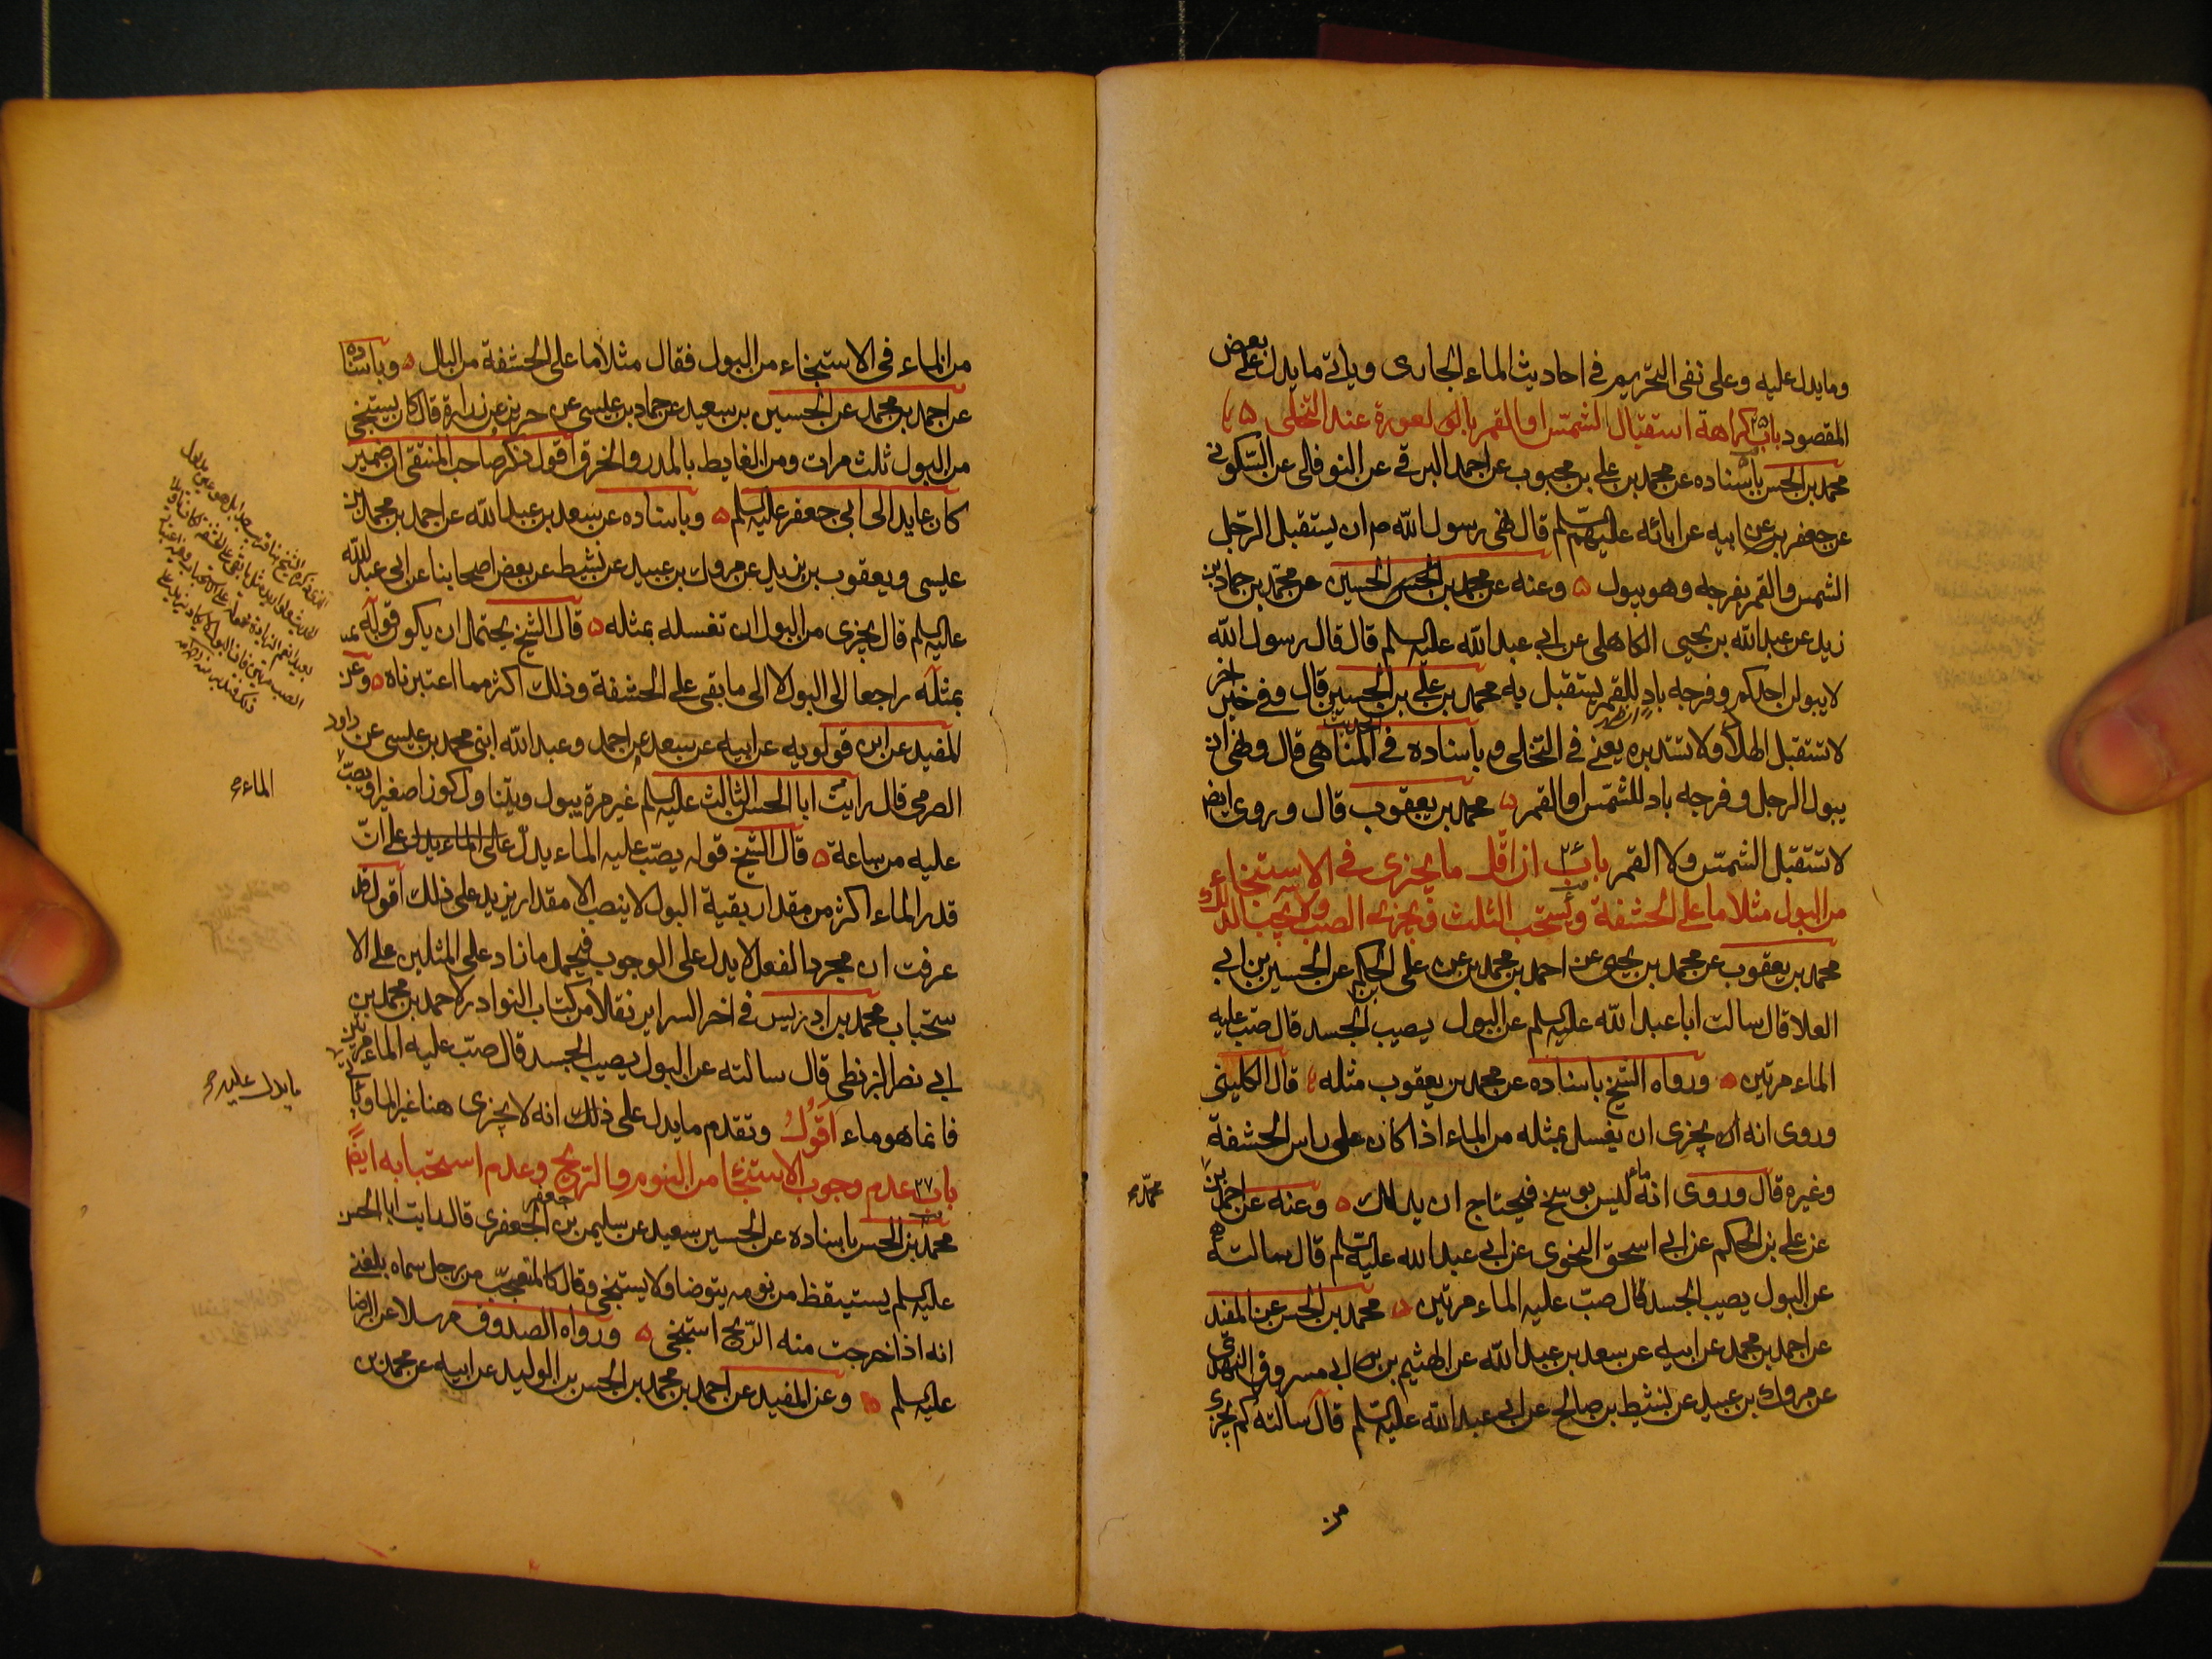 وما يدل عليه وعلى نفى التحريم في احاديث الماء الجارى وياتي ما يدل على بعض
المقصود باب ٢٥ كراهة استقبال الشمس او القمر بالعورة عند التخلى
محمد بن الحسن باسناده عن محمد بن علي بن محبوب عن احمد البرقي عن النوفلي عن السكوني
عن جعفر عن ابيه عن ابائه عليهم السلم قال نهى رسول الله ص ان يستقبل الرجل
الشمس والقمر بفرجه وهو يبول وعنه عن محمد بن الحسين عن محمد بن حماد بن
زيد عن عبد الله بن يحيى الكاهلى عن ابي عبد الله عليه السلم قال قال رسول الله
لا يبولن احدكم وفرجه باد للقمر يستقبل به محمد بن علي بن الحسين قال وفي خبر اخر
لا تستقبل الهلال ولا تستدبره يعني في التخلى وباسناده في حديث المناهى قال ونهى ان
يبول الرجل وفرجه باد للشمس او القمر محمد بن يعقوب قال وروى ايضا
لا تستقبل الشمس ولا القمر باب ٢٦ ان اقل ما يجزى في الاستنجاء
من البول مثلا ما على الحشفة ويستحب الثلث ويجزى الصب ولا يجب الدلك
محمد بن يعقوب عن محمد بن يحيى عن احمد بن محمد عن على بن الحكم عن الحسين بن ابي
العلا قال سالت ابا عبد الله عليه السلم عن البول يصيب الجسد قال صب عليه
الماء مرتين ورواه الشيخ باسناده عن محمد بن يعقوب مثله قال الكليني
وروى انه يجزى ان يغسل بمثله من الماء اذا كان على راس الحشفة
وغيره قال وروى انه ماء ليس بوسخ فيحتاج ان يدلك وعنه عن احمد بن
محمد
عن علي بن الحكم عن ابي اسحق النحوى عن ابي عبد الله عليه السلم قال سالته
عن البول يصيب الجسد قال صب عليه الماء مرتين محمد بن الحسن عن المفيد
عن احمد بن محمد عن ابيه عن سعد بن عبد الله عن الهثيم بن ابي مسروق النهدى
عن مروك بن عبيد عن نشيط بن صالح عن ابي عبد الله عليه السلم قال سالته كم يجزى
من
من الماء في الاستنجاء من البول فقال مثلا ما على الحشفة من البلل وباسناده
عن احمد بن محمد عن الحسين بن سعيد عن حماد بن عيسى عن حريز عن زرارة قال كان يستنجى
من البول ثلث مرات ومن الغايط بالمدر والخرق اقول ذكر صاحب المنتقى ان ضمير
كان عايد الى ابي جعفر عليه السلم وباسناده عن سعد بن عبد الله عن احمد بن محمد بن
عيسى ويعقوب بن يزيد عن مروك بن عبيد عن نشيط عن بعض اصحابنا عن ابي عبد الله
عليه السلم قال يجزى من البول ان تغسله بمثله قال الشيخ يحتمل ان يكون قوله
بمثله راجعا الى البول لا الى ما بقى على الحشفة وذلك اكثر مما اعتبرناه وعن
المفيد عن ابن قولويه عن ابيه عن سعد عن احمد وعبد الله ابنى محمد بن عيسى عن داود
الصرمى قال رايت ابا الحسن الثالث عليه السلم غير مرة يبول ويتناول كوزا صغيرا ويصب
الماء
عليه من ساعة قال الشيخ قوله يصب عليه الماء يدل على ان
قدر الماء اكثر من مقدار بقية البول لا ينصب الا مقدار يزيد على ذلك اقول قد
عرفت ان مجرد الفعل لا يدل على الوجوب فيحمل ما زاد على المثلين على الا
ستحباب محمد بن ادريس في اخر السراير نقلا من كتاب النوادر لاحمد بن محمد بن
ابي نصر البزنطى قال سالته عن البول يصيب الجسد قال صب عليه الماء مرتين
فانما هو ماء اقول وتقدم ما يدل على ذلك انه لا يجزى هنا غير الماء وياتي
ما يدل عليه
باب ٢٧ عدم وجوب الاستنجا من النوم والريح وعدم استحبابه ايضا
محمد بن الحسن باسناده عن الحسين سعيد عن سليمن بن جعفر الجعفرى قال رايت ابا الحسن
عليه السلم يستيقظ من نومه يتوضا ولا يستنجى وقال كالمتعجب من رجل سماه بلغنى
انه اذا خرجت منه الريح استنجى ورواه الصدوق مرسلا عن الرضا
عليه السلم وعن المفيد عن احمد بن محمد بن الحسن بن الوليد عن ابيه عن محمد بن